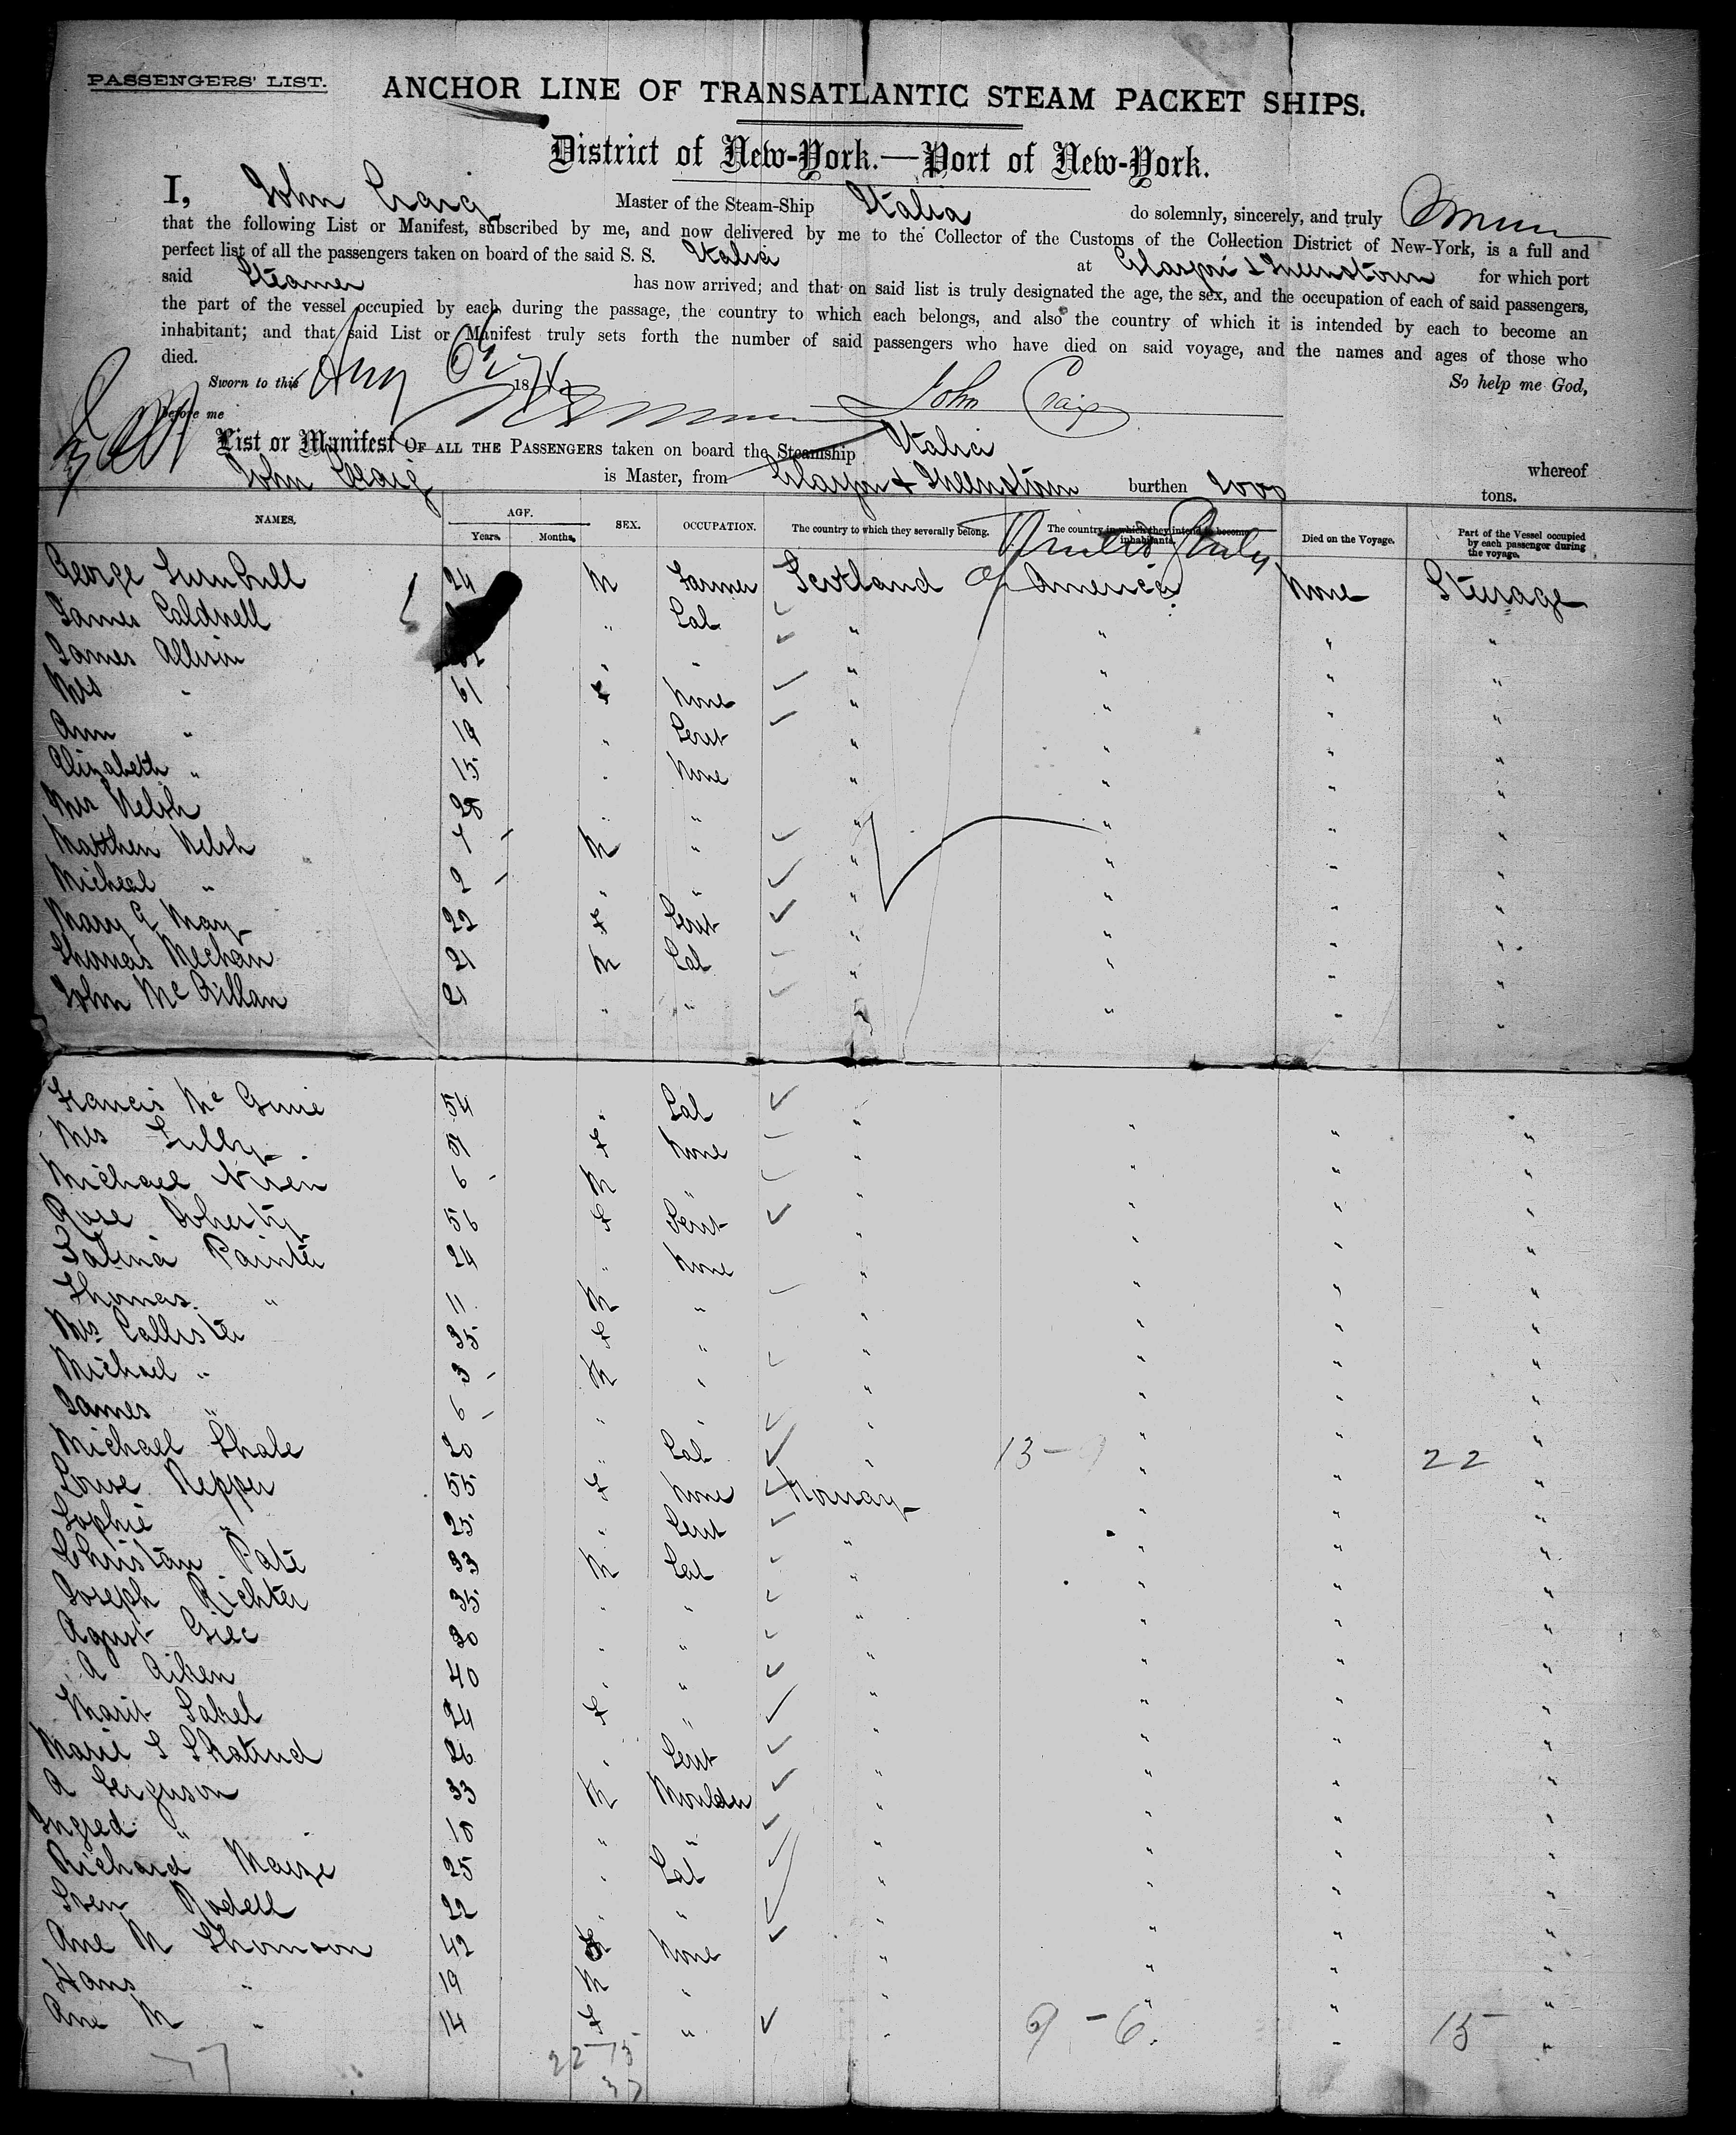 PASSENGERS' LIST.
ANCHOR LINE OF TRANSATLANTIC STEAM PACKET SHIPS.
District of New-York.—Port of New-York.
I, John Craig Master of the Steam-Ship Italia do solemnly, sincerely, and truly
that the following List or Manifest, subscribed by me, and now delivered by me to the Collector of the Customs of the Collection District of New-York, is a full and
perfect list of all the passengers taken on board of the said S. S. Italia at for which port
said Steamer has now arrived; and that on said list is truly designated the age, the sex, and the occupation of each of said passengers,
the part of the vessel occupied by each during the passage, the country to which each belongs, and also the country of which it is intended by each to become an
inhabitant; and that said List or Manifest truly sets forth the number of said passengers who have died on said voyage, and the names and ages of those who
died.
So help me God,
Sworn to this 18
John Craig
before me
List or Manifest OF ALL THE PASSENGERS taken on board the Steamship Italia whereof
John Craig is Master, from burthen 2000 tons.
NAMES. AGE. Years. Months. SEX. OCCUPATION. The country to which they severally belong. The country in which they intend to become inhabitants. Died on the Voyage. Part of the Vessel occupied by each passenger during the voyage.
George Turnbull 24 M Farmer Scotland United States of America None Steerage
James Caldwell " Lab " " " "
James Allison " " " " " "
Mrs " 61 F None " " " "
Ann " 19 " Servt " " " "
Elizabeth " 15 " None " " " "
Mrs Welsh 28 " " " " " "
Matthew Welsh 7 M " " " " "
Micheal " 2 " " " " " "
Mary A May 22 F Servt " " " "
Thomas Mechan 21 M Lab " " " "
John Mc 21 " " " " " "
Francis Mc 54 " Lab " " " "
Mrs F None " " " "
Michael 6 M " " " " "
Rose Doherty 56 F Servt " " " "
Salina Painter 24 " None " " " "
Thomas " 11 M " " " " "
Mrs Callister 35 F " " " " "
Michael " 3 M " " " " "
James " 6 " " " " " "
Michael 20 " Lab " 13 - 9 " " 22 "
55 F None Norway " " "
Sophie " 25 " Servt " " " "
Christian 33 M Lab " " " "
Joseph Richter 35 " " " " " "
30 " " " " " "
A Aiken 40 " " " " " "
Marit 24 F " " " " "
Marie S 26 " Servt " " " "
A Ferguson 33 M Moulder " " " "
Ingred " 10 " " " " " "
Richard 25 " Lab " " " "
Sven Rodell 22 " " " " " "
Ane M Thomson 42 F None " " " "
Hans " 19 M " " " " "
Ane M " 14 F " " 9 - 6 " 15 "
22 - 15
37